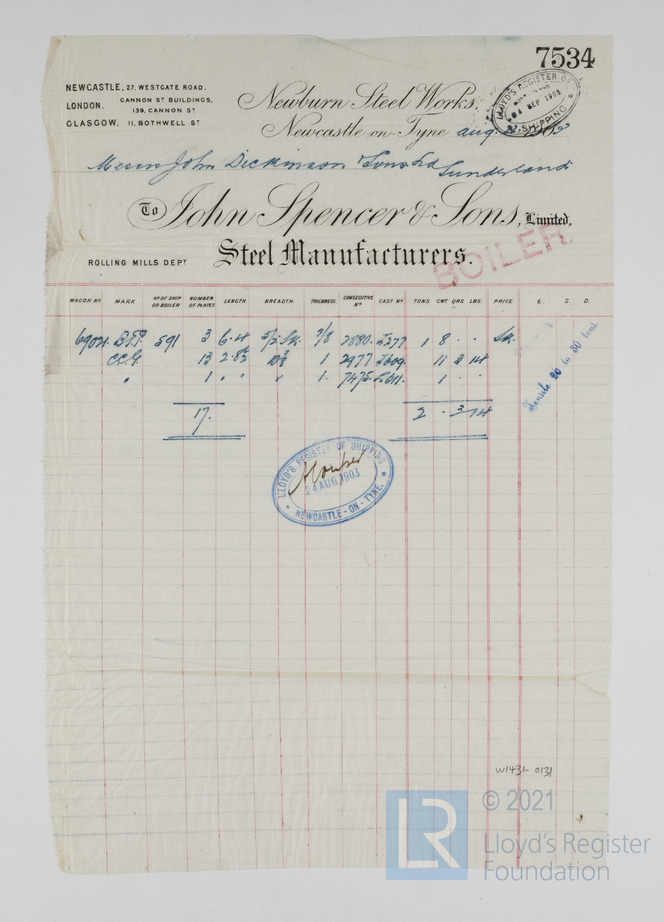 7534
NEWCASTLE, 27. WESTGATE ROAD.
LONDON, CANNON ST BUILDINGS,
139, CANNON ST
GLASGOW, 11, BOTHWELL ST
Newburn Steel Works,
Newcastle-on-Tyne aug.
LLOYD'S REGISTER OF SHIPPING
SEP 1903
Messrs John Dickinson & Sons Ld Sunderland
To John Spencer & Sons, Limited,
Steel Manufacturers.
ROLLING MILLS DEPT
BOILER.
WAGON No MARK No OF SHIP OR BOILER NUMBER OF PLATES LENGTH BREADTH. THICKNESS CONSECUTIVE No CAST No TONS CWT QRS. LBS. PRICE. £. S. D.
591 3 6.4 7/8 2880. 1 8 . .
C.C.G. 13 1 2977 11 3 14
" 1 " " " 1. 7475 1 . .
17. 2 . 3 14
Tensile 26 to 30 tons
LLOYD'S REGISTER OF SHIPPING
24 AUG 1903
NEWCASTLE-ON-TYNE.
W1431-0131
LR
© 2021
Lloyd's Register
Foundation